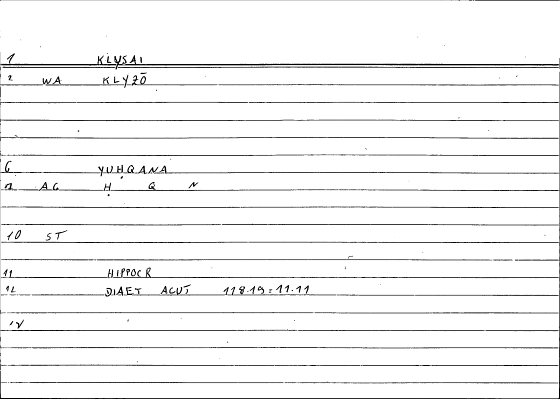 1 KLYSAI
2 WA KLYZŌ
6 YUḤQANA
7 AG Ḥ Q N
10 ST
11 HIPPOCR
12 DIAET ACUT 118.19=11.11